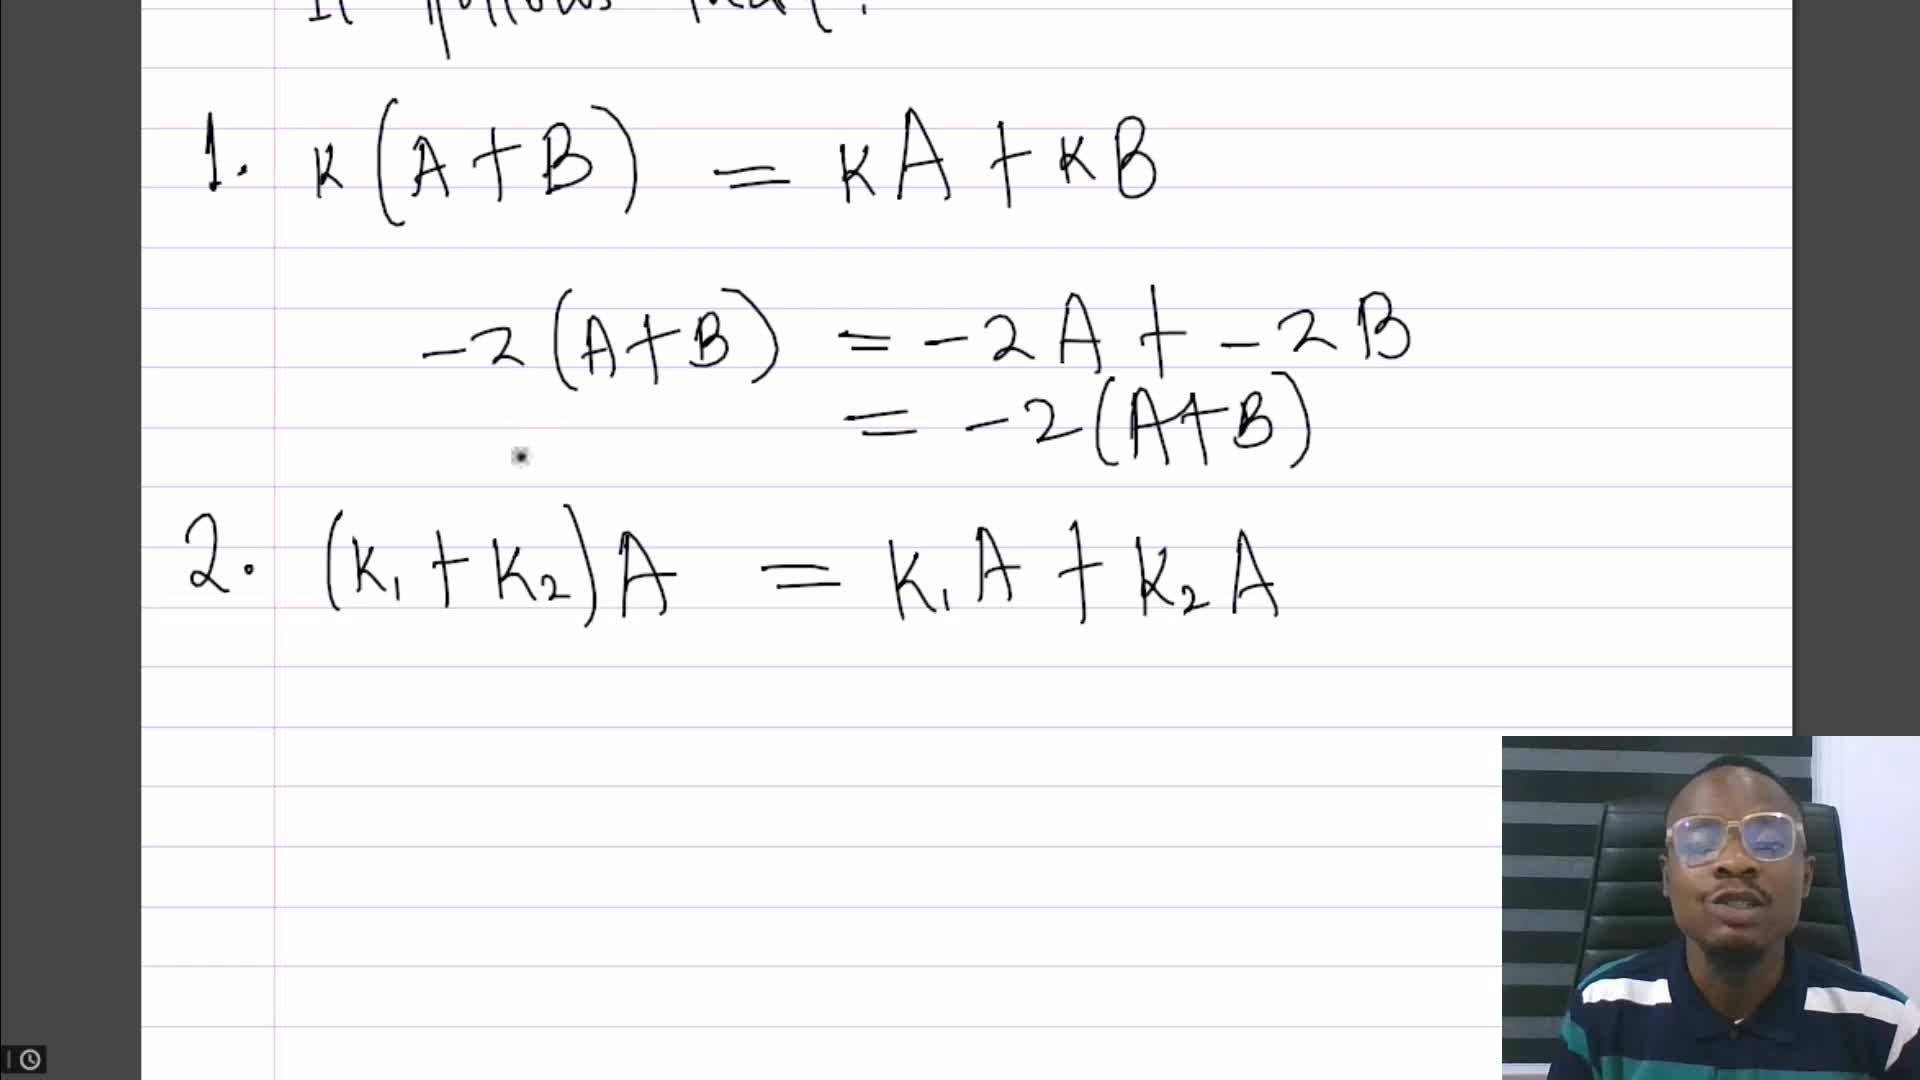 It follows that:
1. K(A+B) = KA + KB
-2(A+B) = -2A + -2B
= -2(A+B)
2. (K₁+K₂)A = K₁A + K₂A